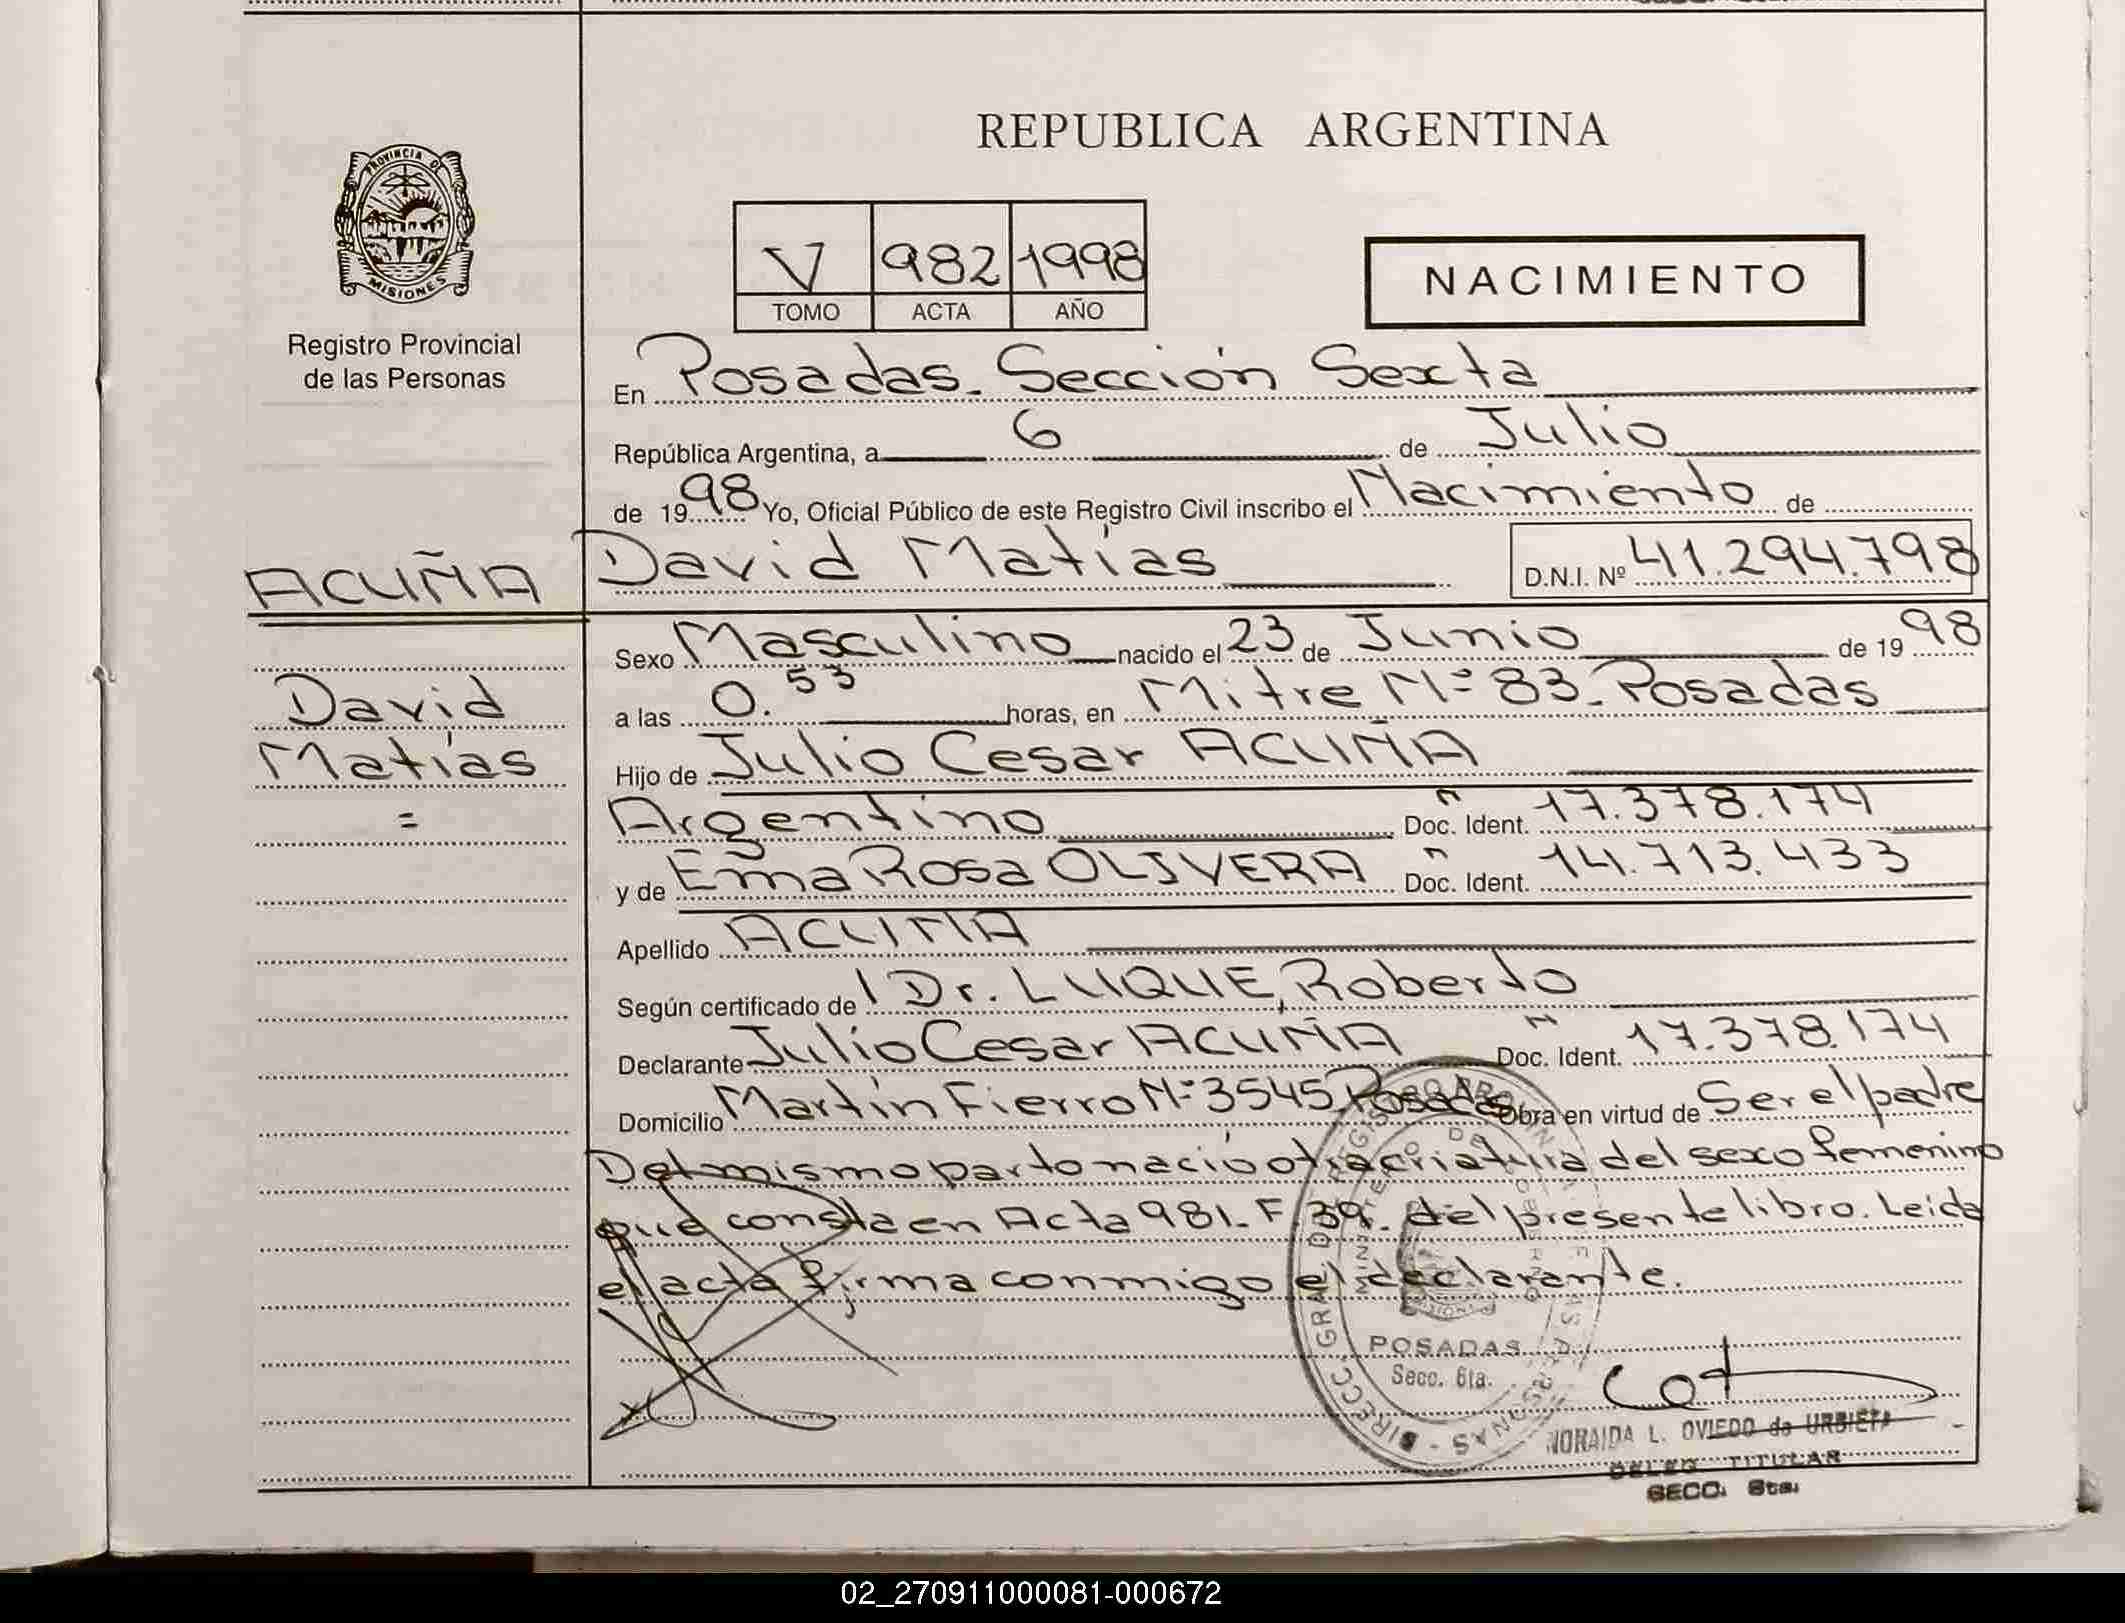 REPUBLICA ARGENTINA
PROVINCIA DE
MISIONES
Registro Provincial
de las Personas
V 982 1998
TOMO ACTA AÑO
NACIMIENTO
En Posadas. Sección Sexta
República Argentina, a 6 de Julio
de 1998 Yo, Oficial Público de este Registro Civil inscribo el Nacimiento de
ACUÑA David Matías D.N.I. Nº 41.294.798
Sexo Masculino nacido el 23 de Junio de 1998
David
a las 0.53 horas, en Mitre Nº 83. Posadas
Matías
=
Hijo de Julio Cesar ACUÑA
Argentino Doc. Ident. 17.378.174
y de Ema Rosa OLIVERA Doc. Ident. 14.713.433
Apellido ACUÑA
Según certificado de Dr. LUQUE, Roberto
Declarante Julio Cesar ACUÑA Doc. Ident. 17.378.174
Domicilio Martín Fierro Nº 3545. Posadas Obra en virtud de Ser el padre
Del mismo parto nació otra criatura del sexo femenino
que consta en Acta 981. F. 39. del presente libro. Leída
el acta firma conmigo el declarante.
POSADAS
Secc. 6ta.
NORAIDA L. OVIEDO de URBIETA
DELEG TITULAR
SECC. 6ta.
02_270911000081-000672